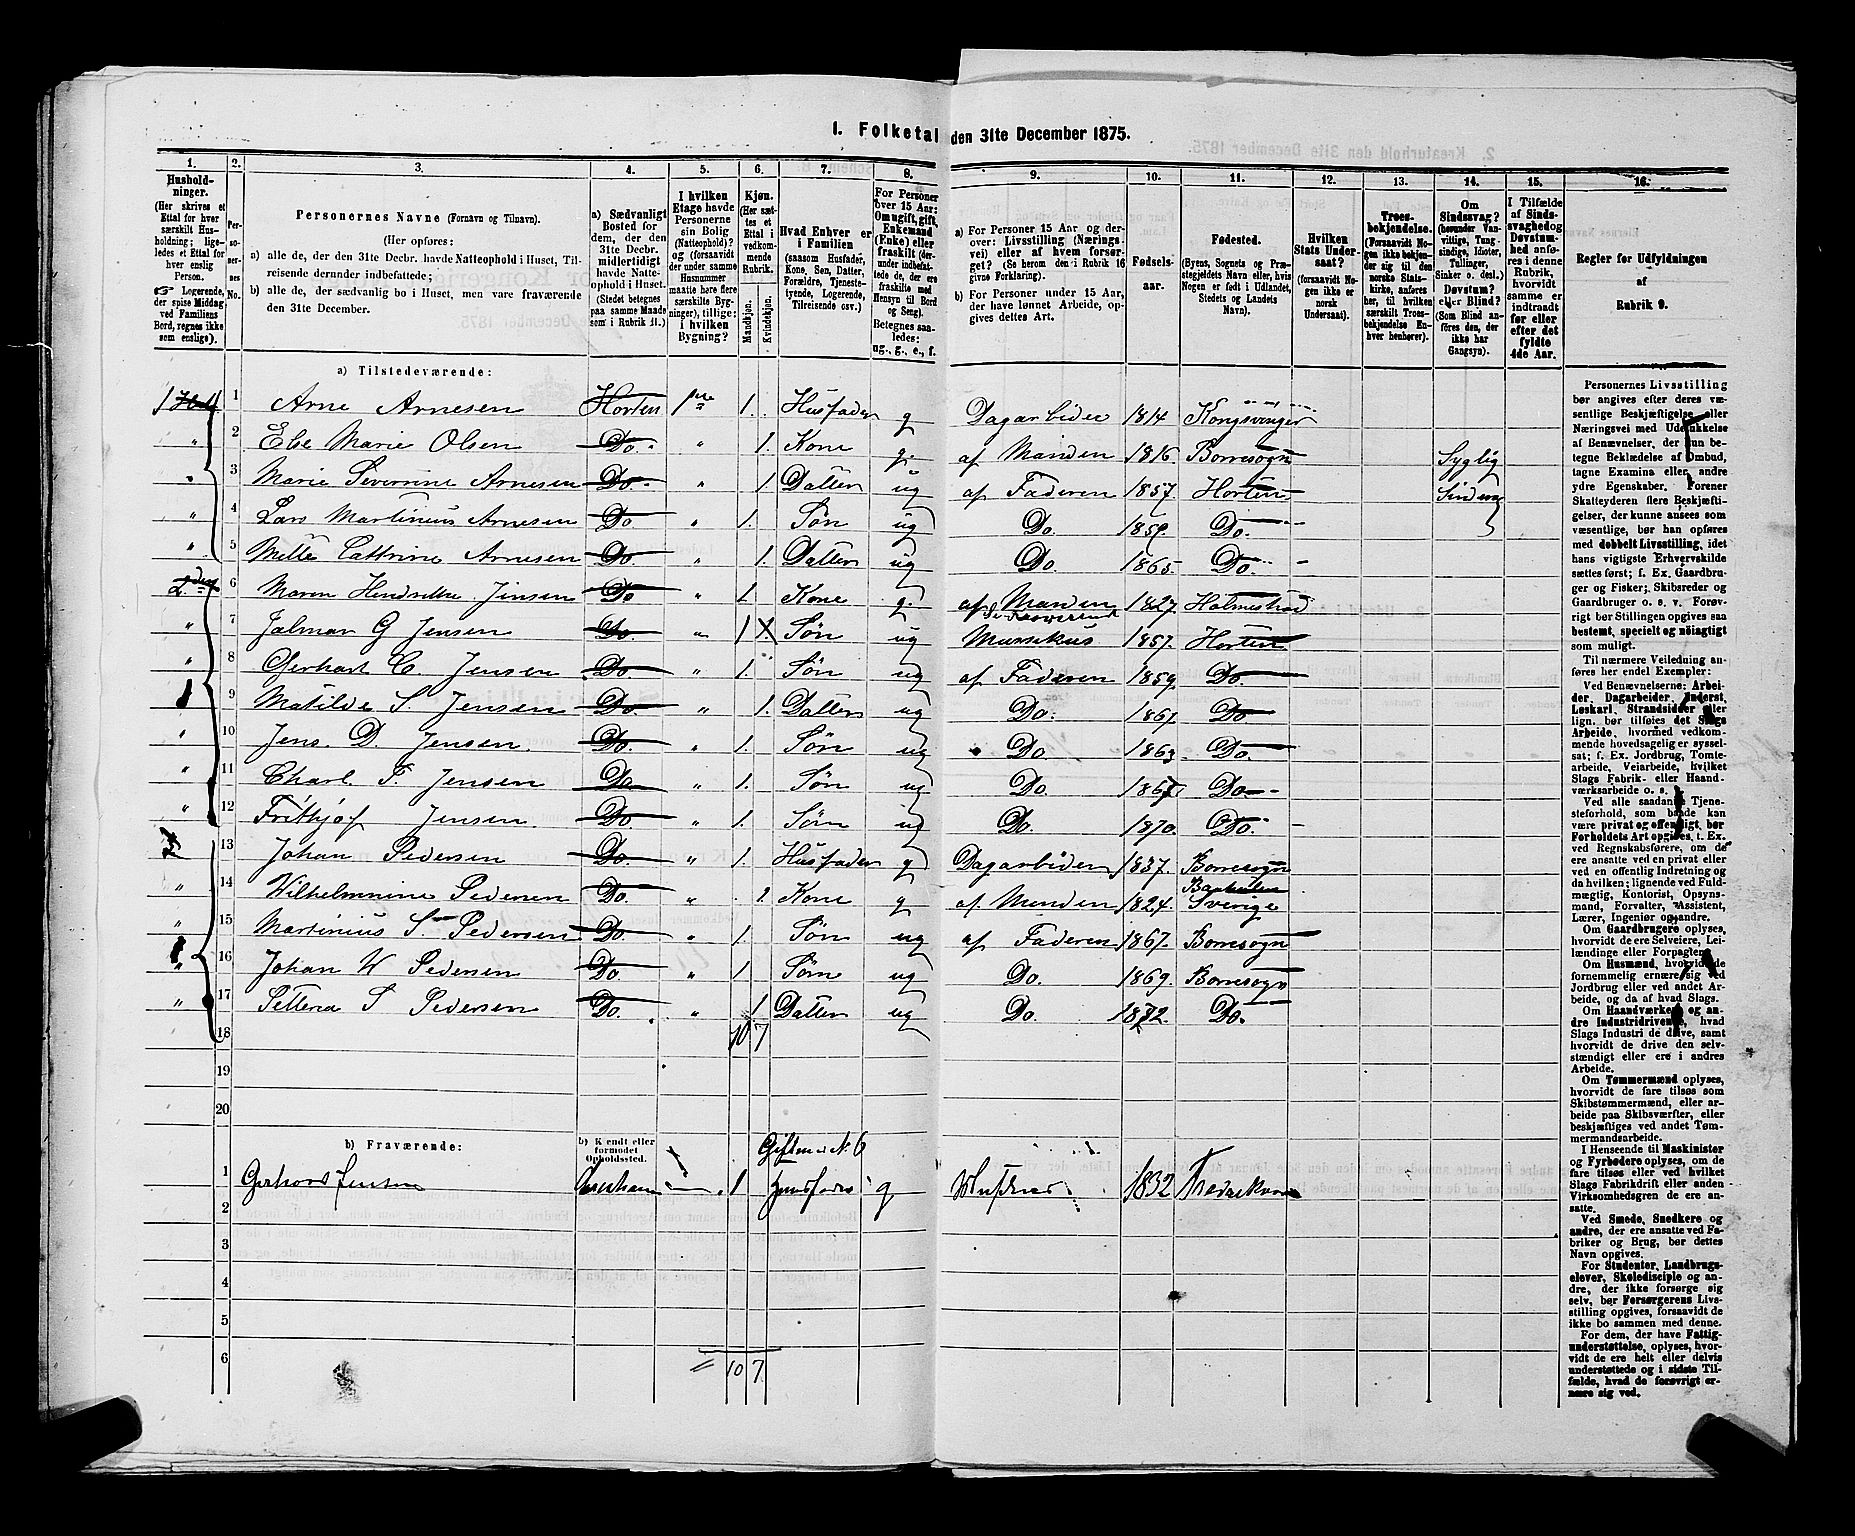 1. Folketal den 31te December 1875.
1. 2. 3. 4. 5. 6. 7. 8. 9. 10. 11. 12. 13. 14. 15. 16.
Hushold-
ninger.
(Her skrives et
Ettal for hver
særskilt Hus-
holdning; lige-
ledes et Ettal for
hver enslig
Person.
☞ Logerende,
der spise Middag
ved Familiens
Bord, regnes ikke
som enslige).
Per-
so-
ner-
nes
No.
Personernes Navne (Fornavn og Tilnavn).
(Her opføres:
a) alle de, der den 31te Decbr. havde Natteophold i Huset, Til-
reisende derunder indbefattede;
b) alle de, der sædvanlig bo i Huset, men vare fraværende
den 31te December.
a) Sædvanligt
Bosted for
dem, der den
31te Decbr.
midlertidigt
havde Natte-
ophold i Huset.
(Stedet betegnes
paa samme Maade
som i Rubrik 11.)
I hvilken
Etage havde
Personerne
sin Bolig
(Natteophold)?
og (forsaavidt
der under samme
Husnummer
maatte høre flere
særskilte Byg-
ninger), tillige:
i hvilken
Bygning?
Kjøn.
(Her sæt-
tes et
Ettal i
vedkom-
mende
Rubrik.
Mandkjøn.
Kvindekjøn.
Hvad Enhver er
i Familien
(saasom Husfader,
Kone, Søn, Datter,
Forældre, Tjeneste-
tyende, Logerende,
Tilreisende osv.)
For Personer
over 15 Aar:
Om ugift, gift,
Enkemand
(Enke) eller
fraskilt (der-
under indbefat-
tede de, der ere
fraskilte med
Hensyn til Bord
og Seng).
Betegnes saa-
ledes:
ug., g., e., f.
a) For Personer 15 Aar og der-
over: Livsstilling (Nærings-
vei) eller af hvem forsør-
get? (Se herom den i Rubrik 16
givne Forklaring).
b) For Personer under 15 Aar,
der have lønnet Arbeide, op-
gives dettes Art.
Fødsels-
aar.
Fødested.
(Byens, Sognets og Præ-
stegjeldets Navn eller, hvis
Nogen er født i Udlandet,
Stedets og Landets
Navn).
Hvilken
Stats Under-
saat?
(forsaavidt No-
gen ikke er
norsk
Undersaat).
Troes-
bekjendelse.
(Forsaavidt No-
gen ikke beken-
der sig til den
norske Stats-
kirke, anføres
her, til hvilken
særskilt Troes-
bekjendelse En-
hver henhører).
Om
Sindssvag?
(herunder Van-
vittige, Tung-
sindige, Idioter,
Tullinger,
Sinker o. desl.)
Døvstum?
eller Blind?
(Som Blind an-
føres den, der
ikke har
Gangsyn).
I Tilfælde
af Sinds-
svaghed og
Døvstum-
hed anfø-
res i denne
Rubrik,
hvorvidt
samme er
indtraadt
før eller
efter det
fyldte
4de Aar.
Regler for Udfyldningen
af
Rubrik 9.
a) Tilstedeværende:
1 1 Arne Arnesen Horten 1. Husfader g Dagarbider 1814 Kongsvinger
" 2 Else Marie Olsen Do. " 1. Kone g. af Manden 1816. Borresogn Syglig
" 3 Marie Severine Arnesen Do. " 1. Datter ug af Faderen 1857. Horten
" 4 Lars Martinius Arnesen Do " 1. Søn ug Do. 1859. Do.
" 5 Mette Cattrine Arnesen Do. " 1. Datter ug Do. 1865. Do.
6 Maren Hendrikke Jensen Do " 1. Kone g. af Manden 1827. Holmestrad
" 7 Jalmar G Jensen Do. " 1 Søn ug Mussikus 1857. Horten
" 8 Gerhart C. Jensen Do. " 1. Søn ug af Faderen 1859. Do
9 Matilde S Jensen Do. " 1. Datter ug Do. 1861. Do
" 10 Jens. D. Jensen. Do. " 1. Søn ug Do. 1863. Do.
" 11 Charl F. Jensen Do " 1. Søn ug Do. 1867 Do
" 12 Frithjof Jensen Do. " 1. Søn ug Do. 1870. Do.
13 Johan Pedersen Do. " 1. Husfader g Dagarbider 1837. Borresogn
" 14 Wilhelmnine Pedersen Do. " 1. Kone g af Manden 1824. Sverige
" 15 Martinius S Pedersen Do. " 1. Søn ug af Faderen 1867. Borresogn
" 16 Johan W Pedersen Do. " 1. Søn ug Do. 1869. Borresogn
" 17 S Pedersen Do. " 1 Datter ug Do. 1872. Do.
18 10 7
19
20
b) Fraværende:
b) Kjendt eller
formodet
Opholdssted.
Giften N. 6
1 Jensen 1 Husfader g 1832
2
3
4
5
6
10 7
Personernes Livsstilling
bør angives efter deres væ-
sentlige Beskjæftigelse eller
Næringsvei med Udelukkelse
af Benævnelser, der kun be-
tegne Beklædelse af Ombud,
tagne Examina eller andre
ydre Egenskaber. Forener
Skatteyderen flere Beskjæfti-
gelser, der kunne ansees som
væsentlige, bør han opføres
med dobbelt Livsstilling, idet
hans vigtigste Erhvervskilde
sættes først; f. Ex. Gaardbru-
ger og Fisker; Skibsreder og
Gaardbruger o. s. v. Forøv-
rigt bør Stillingen opgives saa
bestemt, specielt og nøiagtigt
som muligt.
Til nærmere Veiledning an-
føres her endel Exempler:
Ved Benævnelserne: Arbei-
der, Dagarbeider, Inderst,
Løskarl, Strandsidder eller
lign. bør tilføies det Slags
Arbeide, hvormed vedkom-
mende hovedsagelig er syssel-
sat; f. Ex. Jordbrug, Tomte-
arbeide, Veiarbeide, hvilket
Slags Fabrik- eller Haand-
værksarbeide o. s. v.
Ved alle saadanne Tjene-
steforhold, som baade kan
være privat og offentligt, bør
Forholdets Art opgives, t. Ex.
ved Regnskabsførere, om de
ere ansatte ved en privat eller
ved en offentlig Indretning og
da hvilken; lignende ved Fuld-
mægtig, Kontorist, Opsyns-
mand, Forvalter, Assistent,
Lærer, Ingeniør og andre.
Om Gaardbrugere oplyses,
hvorvidt de ere Selveiere, Lei-
lændinge eller Forpagtere.
Om Husmænd, hvorvidt de
fornemmelig ernære sig ved
Jordbrug eller ved andet Ar-
beide, og da af hvad Slags.
Om Haandværkere og an-
dre Industridrivende, hvad
Slags Industri de drive, samt
hvorvidt de drive den selv-
stændigt eller ere i andres
Arbeide.
Om Tømmermænd oplyses,
hvorvidt de fare tilsøs som
Skibstømmermænd, eller ar-
beide paa Skibsværfter, eller
beskjæftiges ved andet Tøm-
mermandsarbeide.
I Henseende til Maskinister
og Fyrbødere oplyses, om de
fare tilsøs eller ved hvilket
Slags Fabrikdrift eller anden
Virksomhedsgren de ere an-
satte.
Ved Smede, Snedkere og
andre, der ere ansatte ved Fa-
briker og Brug, bør dettes
Navn opgives.
For Studenter, Landbrugs-
elever, Skoledisciple og an-
dre, der ikke forsørge sig
selv, bør Forsørgerens Livs-
stilling opgives, forsaavidt de
ikke bo sammen med denne.
For dem, der have Fattig-
understøttelse, oplyses, hvor-
vidt de ere helt eller delvis
understøttede og i sidste Til-
fælde, hvad de forøvrigt er-
nære sig ved.